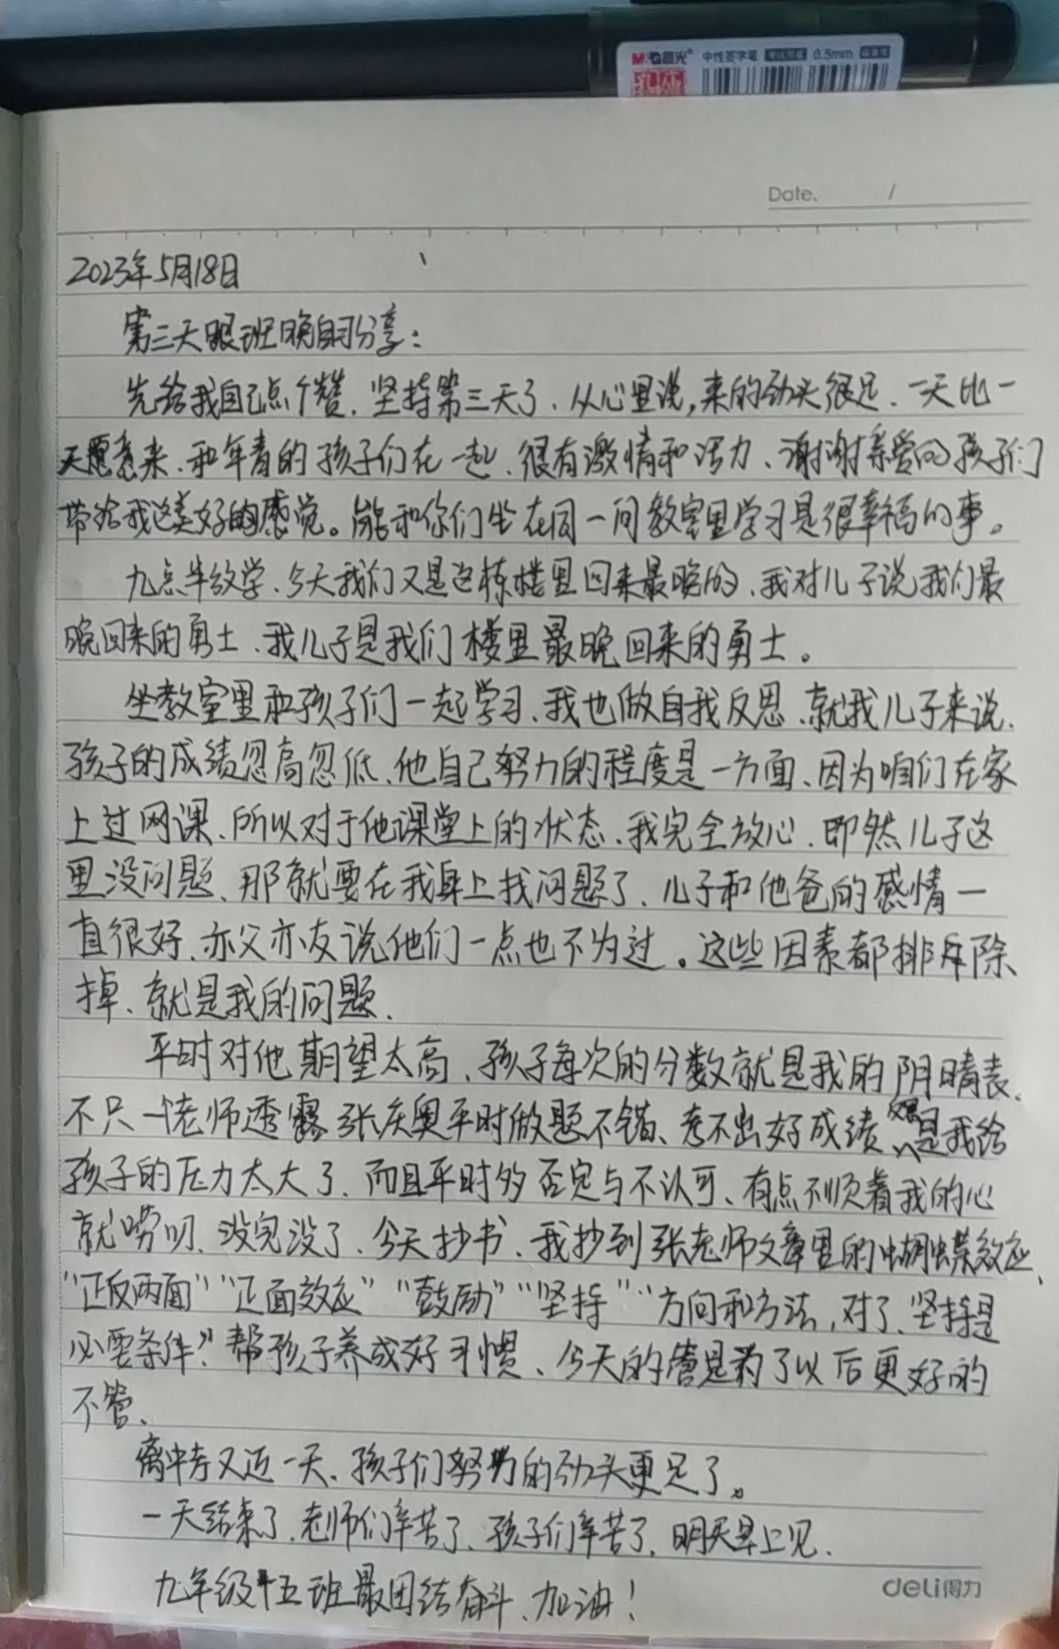 M&G晨光 中性签字笔 0.5mm
Date. /
2023年5月18日
第三天跟班晚自习分享：
先给我自己点个赞．坚持第三天了．从心里说，来的劲头很足．一天比一
天愿意来、和年青的孩子们在一起、很有激情和活力、谢谢亲爱的孩子们
带给我这美好的感觉。能和你们坐在同一间教室里学习是很幸福的事。
九点半放学、今天我们又是这栋楼里回来最晚的、我对儿子说我们最
晚回来的勇士、我儿子是我们楼里最晚回来的勇士。
坐教室里和孩子们一起学习、我也做自我反思、就我儿子来说、
孩子的成绩忽高忽低、他自己努力的程度是一方面、因为咱们在家
上过网课、所以对于他课堂上的状态、我完全放心．即然儿子这
里没问题、那就要在我身上找问题了、儿子和他爸的感情一
直很好、亦父亦友说他们一点也不为过。这些因素都排斥除
掉、就是我的问题．
平时对他期望太高、孩子每次的分数就是我的阴晴表、
不只一个老师透露张庆奥平时做题不错、考不出好成绩 是我给
孩子的压力太大了．而且平时多否定与不认可、有点不顺着我的心
就唠叨、没完没了、今天抄书、我抄到张老师文章里的蝴蝶效应、
“正反两面”“正面效应”“鼓励”“坚持”“方向和方法，对了、坚持是
必要条件”帮孩子养成好习惯、今天的管是为了以后更好的
不管、
离中考又近一天、孩子们努力的劲头更足了。
一天结束了、老师们辛苦了、孩子们辛苦了．明天早上见．
九年级十五班最团结奋斗、加油！
deli得力